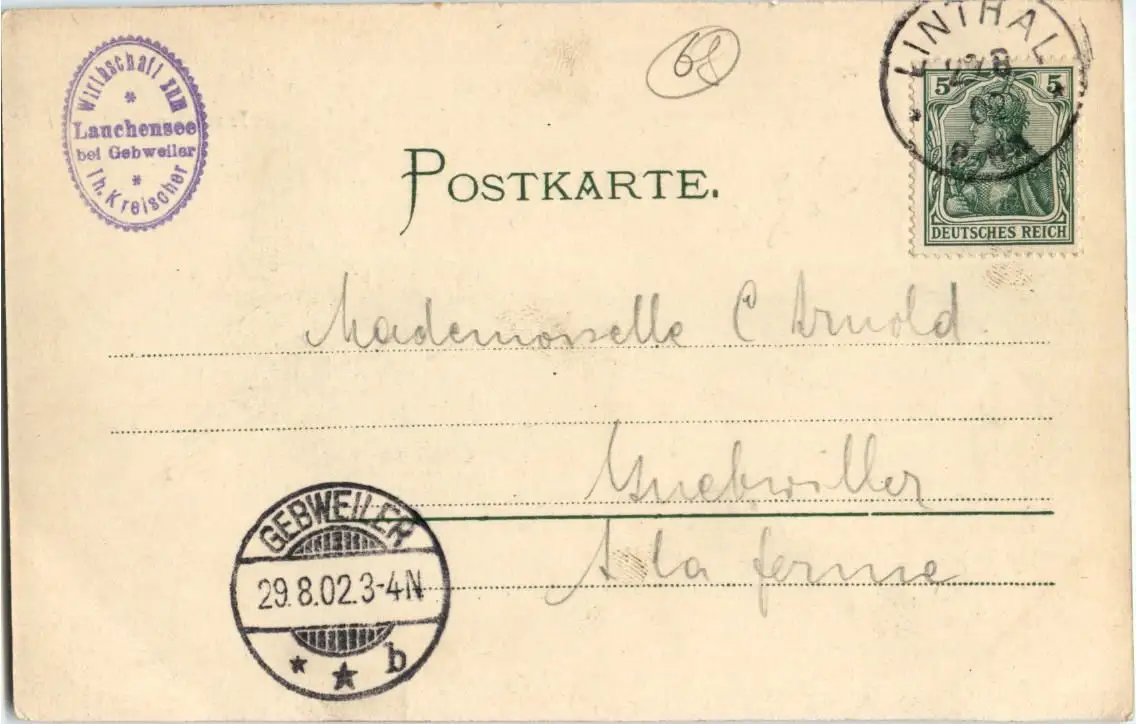 Wirthschaft zum
Lauchensee
bei Gebweiler
Th. Kreischer
68
LINTHAL
02
5 5
DEUTSCHES REICH
POSTKARTE.
Mademoiselle C Arnold
Guebwiller
A la ferme
GEBWEILER
29.8.02.3-4N
b